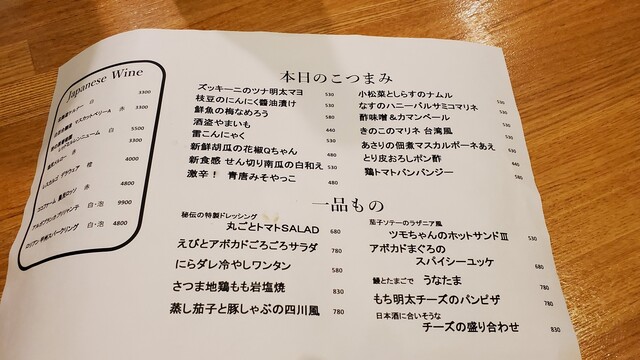 Japanese Wine
白 3300
赤 3300
白 5500
3300
橙 4000
赤 4800
白・泡 9900
白・泡 4800
本日のこつまみ
ズッキーニのツナ明太マヨ 530
枝豆のにんにく醤油漬け 530
鮮魚の梅なめろう 580
酒盗やまいも 440
雷こんにゃく 530
新鮮胡瓜の花椒Qちゃん 480
新食感 せん切り南瓜の白和え 530
激辛! 青唐みそやっこ 480
小松菜としらすのナムル 530
なすのハニーバルサミコマリネ 530
酢味噌&カマンベール 530
きのこのマリネ 台湾風 530
あさりの佃煮マスカルポーネあえ 530
とり皮おろしポン酢 440
鶏トマトバンバンジー 580
一品もの
秘伝の特製ドレッシング
丸ごとトマトSALAD 680
えびとアボカドごろごろサラダ 780
にらダレ冷やしワンタン 580
さつま地鶏もも岩塩焼 830
蒸し茄子と豚しゃぶの四川風 780
茄子ソテーのラザニア風
ツモちゃんのホットサンドⅢ 530
アボカドまぐろの
スパイシーユッケ 680
鰻とたまごで うなたま 780
もち明太チーズのパンピザ 780
日本酒に合いそうな
チーズの盛り合わせ 830